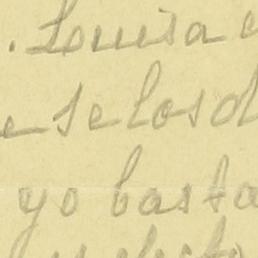 . Louisa
e se los d
yo basta